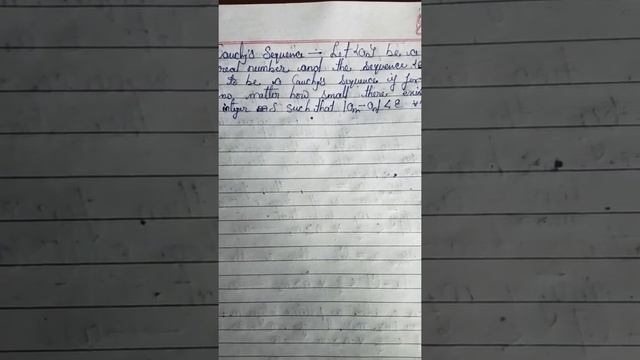 Cauchy's Sequence :- Let {an} be a
real number and the sequence
to be a Cauchy's sequence if for
no matter how small there exis
integer S such that |am-an| < ε